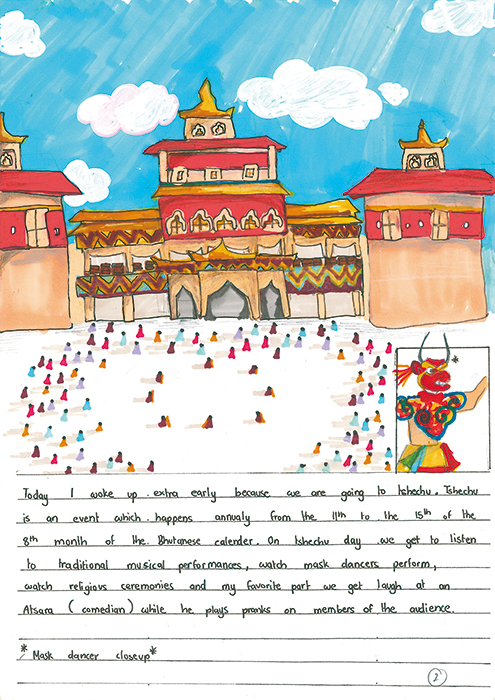 *
Today I woke up extra early because we are going to tshechu. Tshechu
is an event which happens annualy from the 11th to the 15th of the
8th month of the Bhutanese calender. On tshechu day we get to listen
to traditional musical performances, watch mask dancers perform,
watch religious ceremonies and my favorite part we get laugh at an
Atsara (comedian) while he plays pranks on members of the audience.
* Mask dancer closeup*